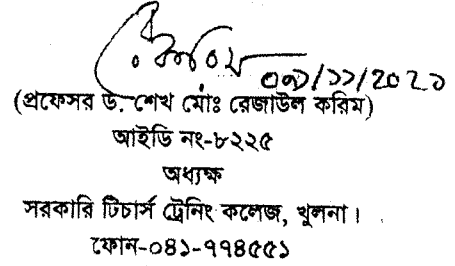 রেকরিম ০৩/১১/2020
(প্রফেসর ড. শেখ মোঃ রেজাউল করিম)
আইডি নং-৮২২৫
অধ্যক্ষ
সরকারি টিচার্স ট্রেনিং কলেজ, খুলনা।
ফোন-০৪১-৭৭৪৫৫১